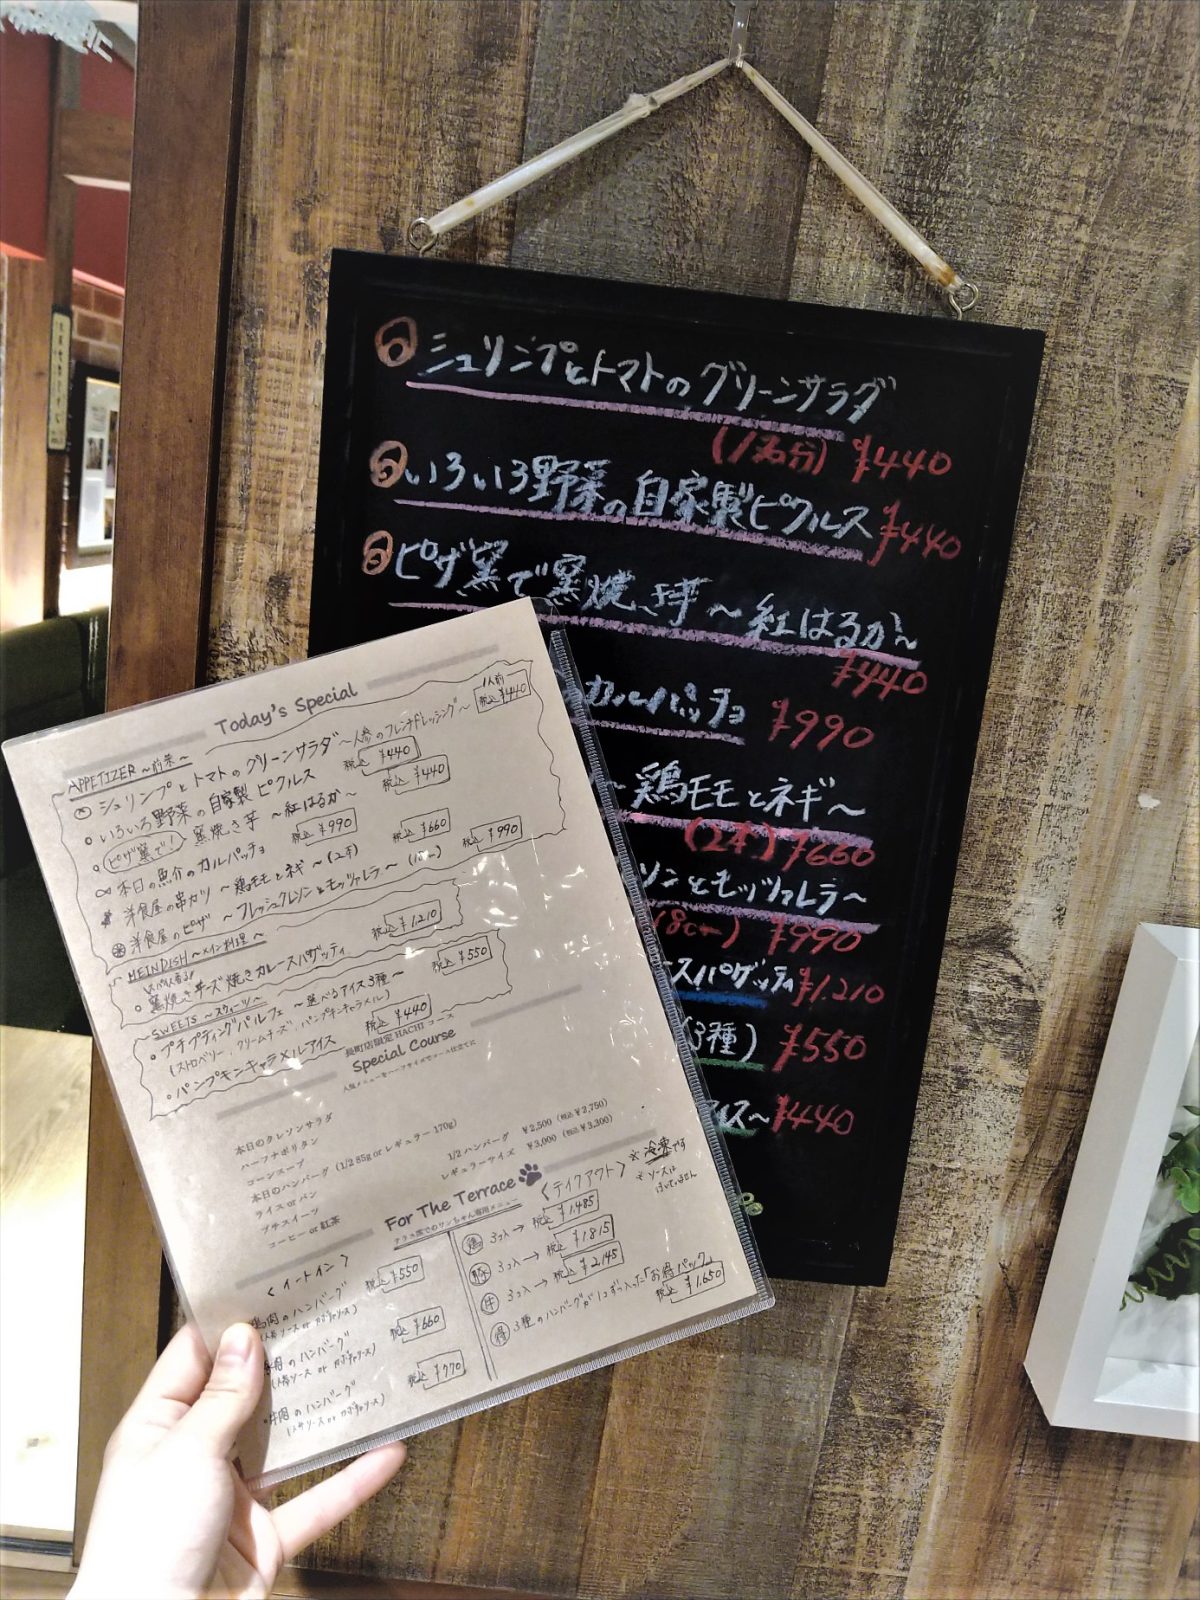 シュリンプとトマトのグリーンサラダ
(1名分) ¥440
いろいろ野菜の自家製ピクルス ¥440
ピザ窯で窯焼き芋 〜紅はるか〜
¥440
カルパッチョ ¥990
〜鶏モモとネギ〜
(2本) ¥660
ソンとモッツァレラ〜
18cm) ¥990
ースパゲッティ ¥1.210
(3種) ¥550
アイス〜 ¥440
Today's Special
APPETIZER 〜前菜〜
シュリンプとトマトのグリーンサラダ 〜人参のフレンチドレッシング〜 1人前 税込 ¥440
いろいろ野菜の自家製ピクルス 税込 ¥440
ピザ窯で! 窯焼き芋 〜紅はるか〜 税込 ¥440
本日の魚介のカルパッチョ 税込 ¥990
洋食屋の串カツ 〜鶏モモとネギ〜 (2本) 税込 ¥660
洋食屋のピザ 〜フレッシュクレソンとモッツァレラ〜 税込 ¥990
MEINDISH 〜メイン料理〜
窯焼きチーズ焼きカレースパゲッティ 税込 ¥1.210
SWEETS 〜スウィーツ〜
プチプティングパルフェ 〜選べるアイス3種〜 税込 ¥550
(ストロベリー、クリームチーズ、パンプキンキャラメル)
パンプキンキャラメルアイス 税込 ¥440
長町店限定 HACHI コース
Special Course
人気メニューをハーフサイズでコース仕立てに
本日のクレソンサラダ
ハーフナポリタン
コーンスープ
本日のハンバーグ (1/2 85g or レギュラー 170g)
ライス or パン
プチスイーツ
コーヒー or 紅茶
1/2 ハンバーグ ¥2,500 (税込 ¥2,750)
レギュラーサイズ ¥3,000 (税込 ¥3,300)
For The Terrace
テラス席でのワンちゃん専用メニュー
〈イートイン〉
鶏肉のハンバーグ 税込 ¥550
(人参ソース or カボチャソース)
豚肉のハンバーグ 税込 ¥660
(人参ソース or カボチャソース)
牛肉のハンバーグ 税込 ¥770
(人参ソース or カボチャソース)
〈テイクアウト〉 ※冷凍です
※ソースは
付いてません
鶏 3コ入→ 税込 ¥1.485
豚 3コ入→ 税込 ¥1.815
牛 3コ入→ 税込 ¥2.145
得 3種のハンバーグが1コずつ入った「お得パック」
税込 ¥1.650